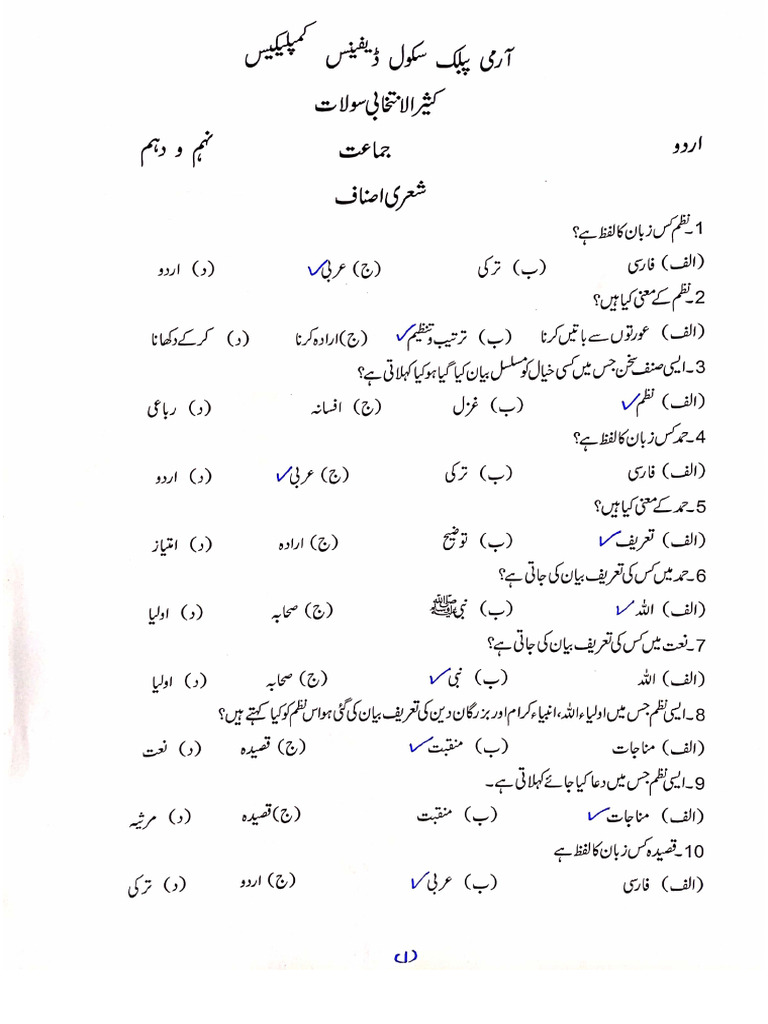 آرمی پبلک سکول ڈیفینس کمپلیکیس
کثیر الانتخابی سولات
اردو جماعت نہم و دہم
شعری اصناف
1۔نظم کس زبان کا لفظ ہے؟
(الف) فارسی (ب) ترکی (ج) عربی✓ (د) اردو
2۔نظم کے معنی کیا ہیں؟
(الف) عورتوں سے باتیں کرنا (ب) ترتیب و تنظیم✓ (ج) ارادہ کرنا (د) کر کے دکھانا
3۔ایسی صنف سخن جس میں کسی خیال کو مسلسل بیان کیا گیا ہو کیا کہلاتی ہے؟
(الف) نظم✓ (ب) غزل (ج) افسانہ (د) رباعی
4۔حمد کس زبان کا لفظ ہے؟
(الف) فارسی (ب) ترکی (ج) عربی✓ (د) اردو
5۔حمد کے معنی کیا ہیں؟
(الف) تعریف✓ (ب) توضیح (ج) ارادہ (د) امتیاز
6۔حمد میں کس کی تعریف بیان کی جاتی ہے؟
(الف) اللہ✓ (ب) نبیﷺ (ج) صحابہ (د) اولیا
7۔نعت میں کس کی تعریف بیان کی جاتی ہے؟
(الف) اللہ (ب) نبی✓ (ج) صحابہ (د) اولیا
8۔ایسی نظم جس میں اولیاء اللہ، انبیاء کرام اور بزرگان دین کی تعریف بیان کی گئی ہو اس نظم کو کیا کہتے ہیں؟
(الف) مناجات (ب) منقبت✓ (ج) قصیدہ (د) نعت
9۔ایسی نظم جس میں دعا کیا جائے کہلاتی ہے۔
(الف) مناجات✓ (ب) منقبت (ج) قصیدہ (د) مرثیہ
10۔قصیدہ کس زبان کا لفظ ہے
(الف) فارسی (ب) عربی✓ (ج) اردو (د) ترکی
(1)